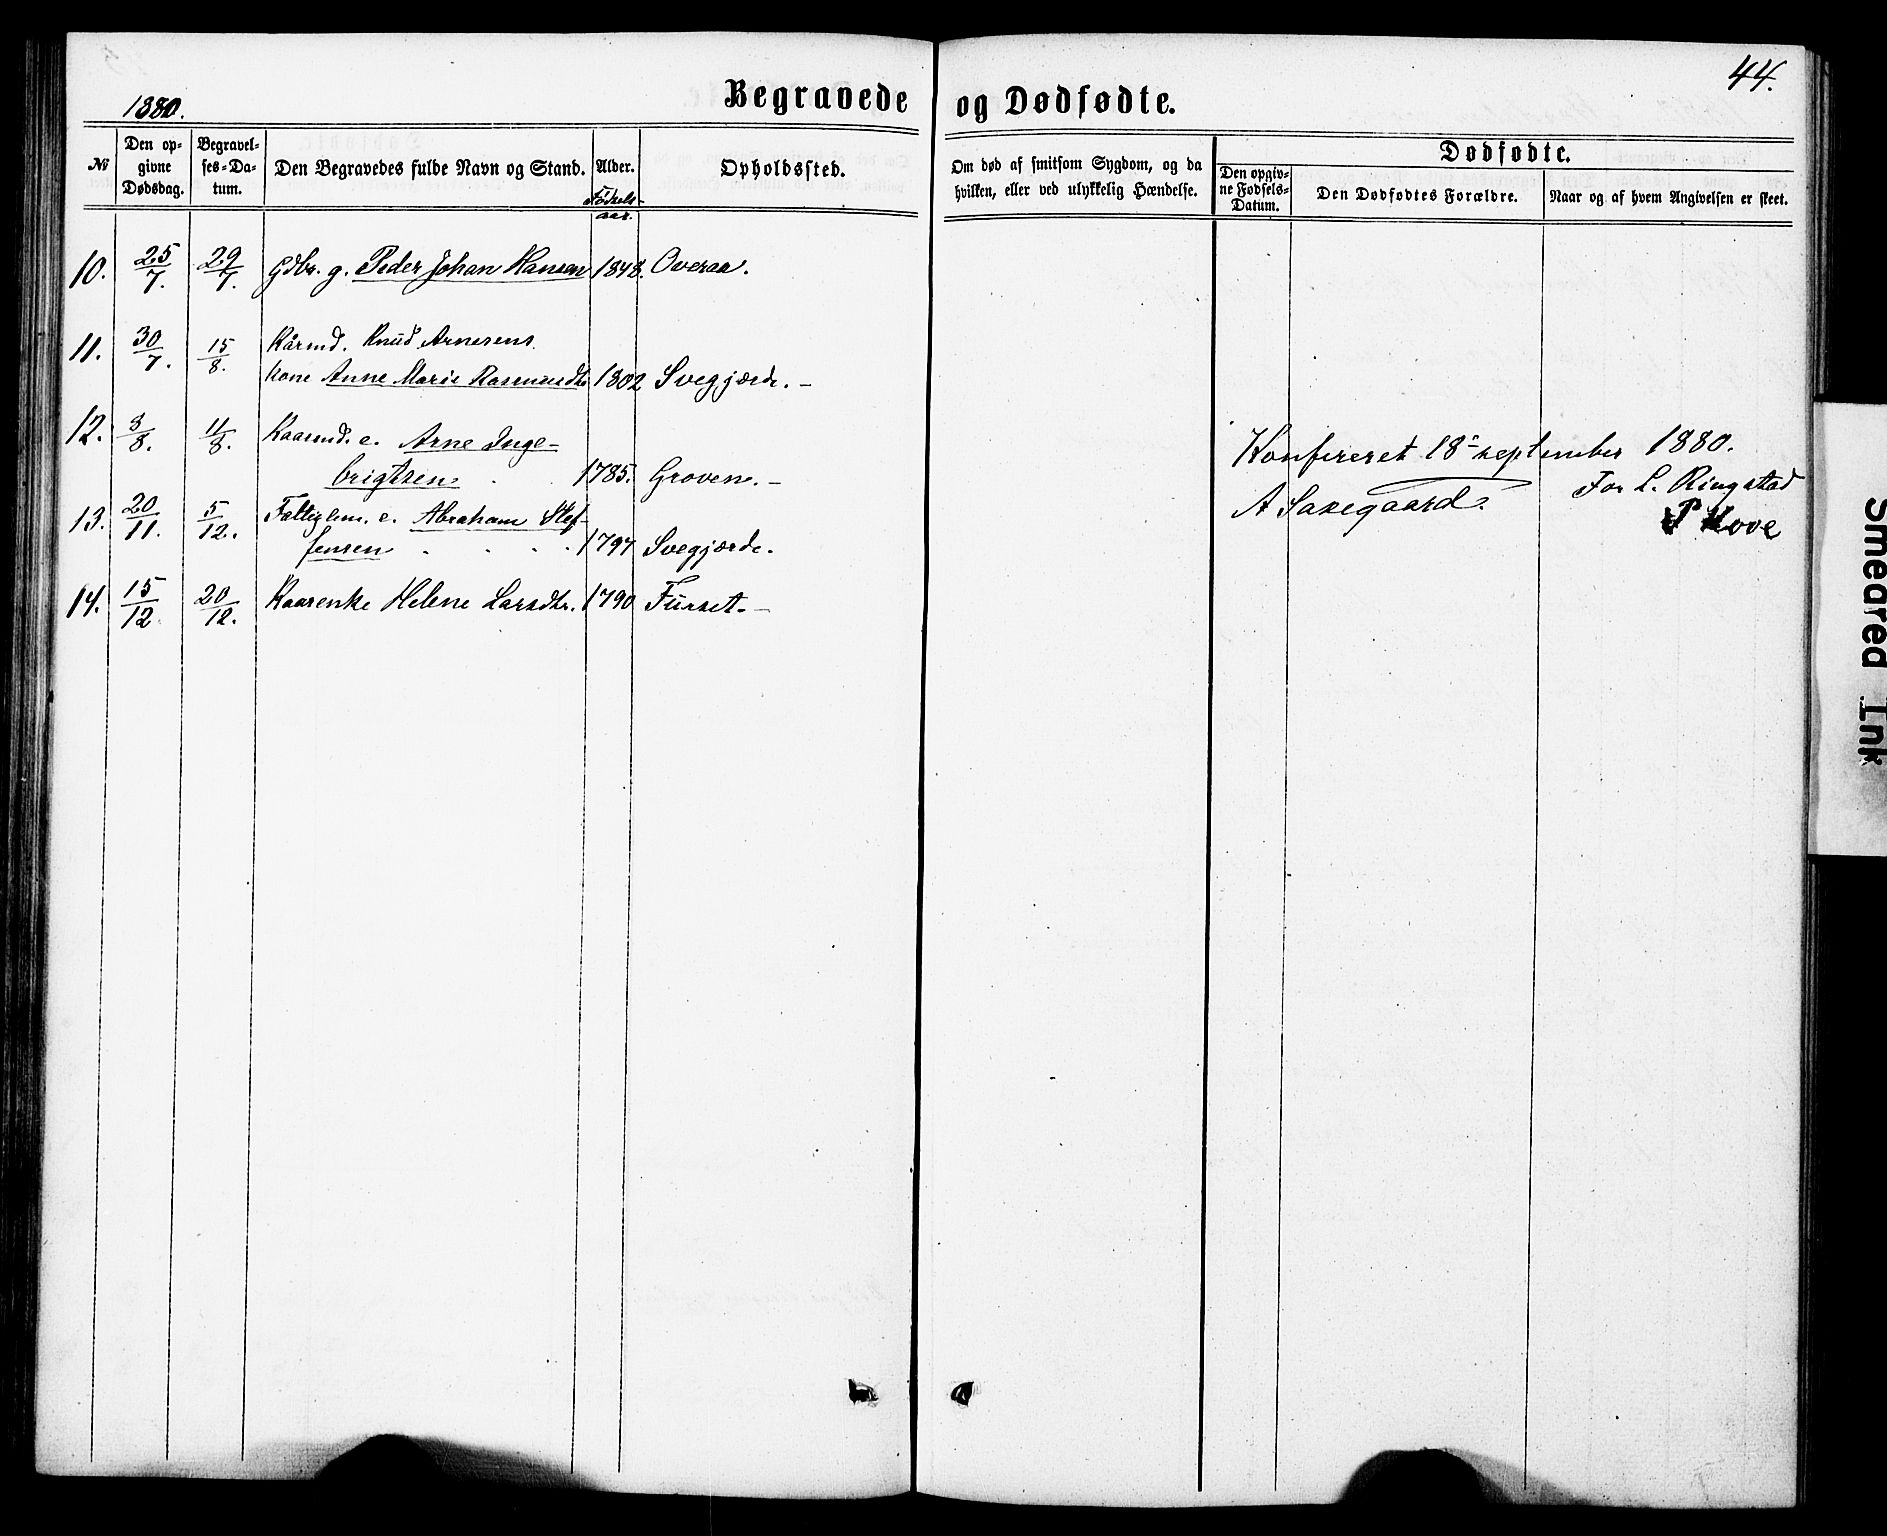 44.
1880.
Begravede og Dødfødte.
№
Den op-
givne
Dødsdag.
Begravel-
ses-Da-
tum.
Den Begravedes fulde Navn og Stand.
Alder.
Fødsels-
aar.
Opholdssted.
Om død af smitsom Sygdom, og da
hvilken, eller ved ulykkelig Hændelse.
Dødfødte.
Den opgiv-
ne Fødsels-
Datum.
Den Dødfødtes Forældre.
Naar og af hvem Angivelsen er skeet.
10. 25/7. 29/7. Gdbr. g. Peder Johan Hansen 1848. Overaa.
11. 30/7. 15/8. Kårmd. Knud Arnesens
Kone Anne Marie Rasmusdtr 1802 Svegjærde. -
12. 3/8. 11/8. Kaarmd. e. Arne Inge-
brigtsen . . 1785. Groven. -
13. 20/11. 5/12. Fattiglem. e. Abraham Stef-
fensen . . . . 1797 Svegjærde.
14. 15/12. 20/12. Kaarenke Helene Larsdtr. 1790 Furset. -
Konfereret 18 september 1880.
A Saxegaard.
For L. Ringstad
P Hove
Smeared Ink